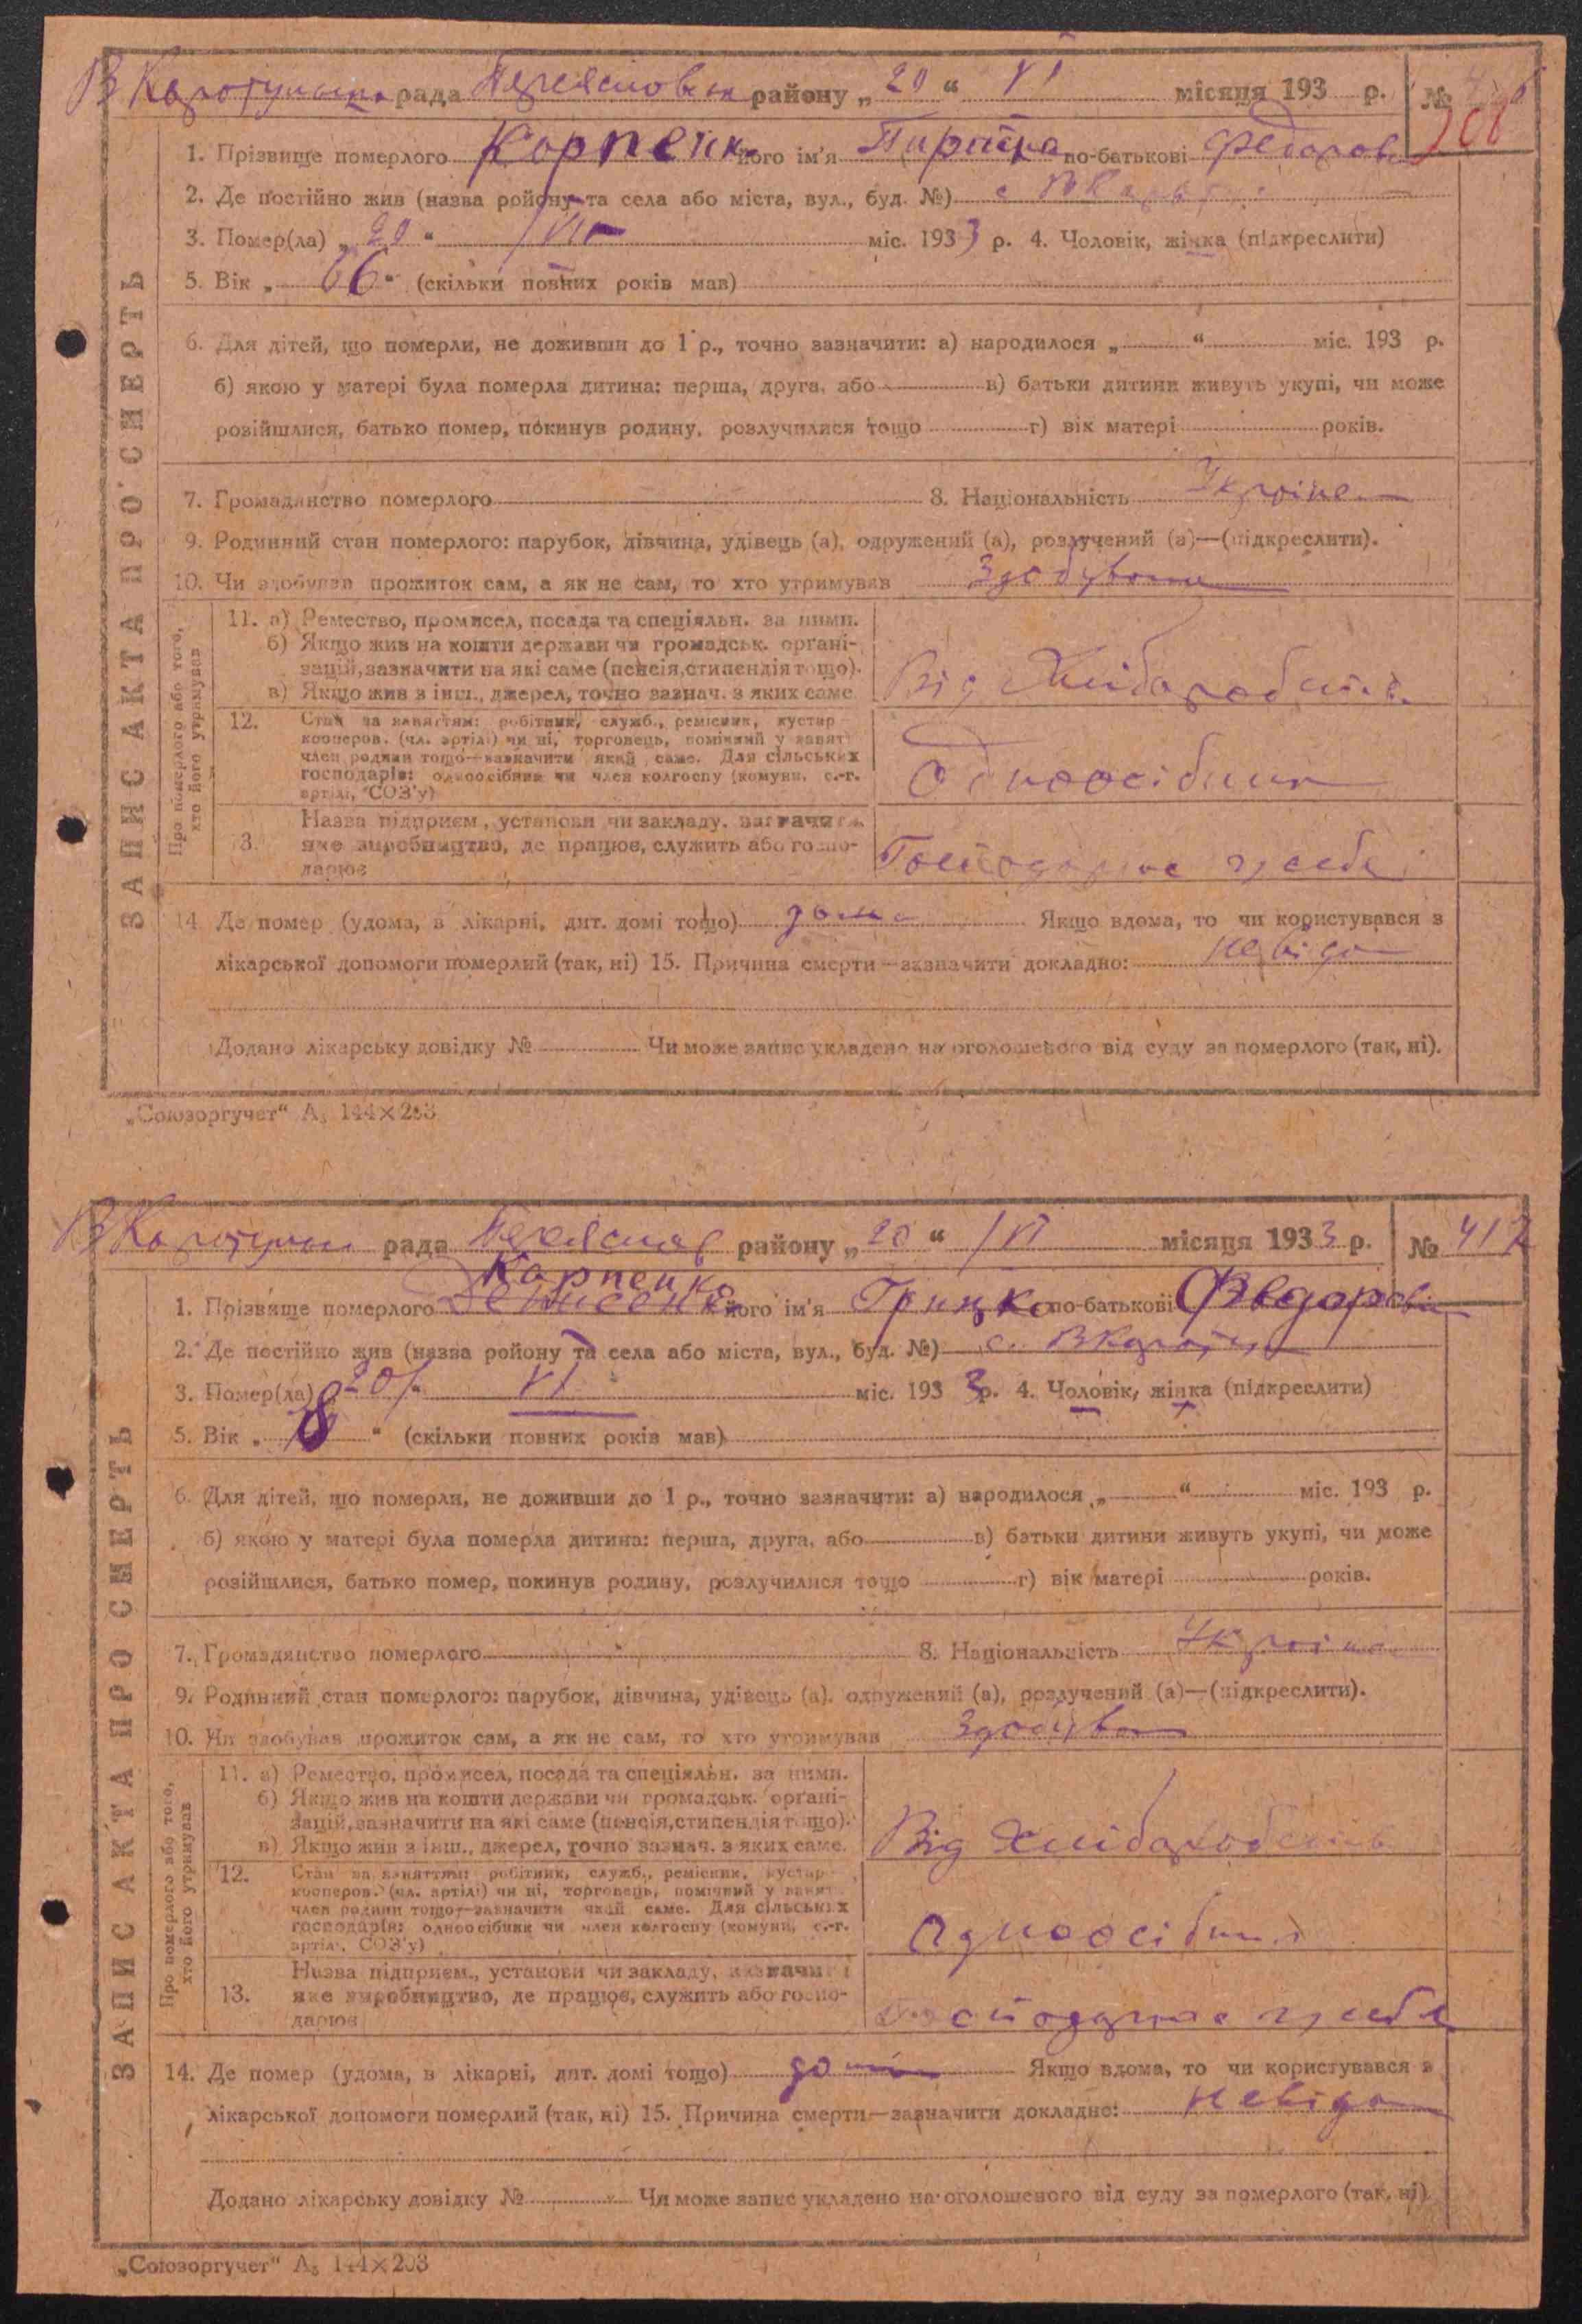 ЗАПИС АКТА ПРО СМЕРТЬ
рада район у „ 20 “ VI місяця 193 р. №
1. Прізвище померлого Корпенк його ім'я по-батькові Федоров
2. Де постійно жив (назва ройону та села або міста, вул., буд. №) с
3. Помер(ла) „ 20 “ VI міс. 193 3 р. 4. Чоловік, жінка (підкреслити)
5. Вік „ 66 “ (скільки повних років мав)
6. Для дітей, що померли, не доживши до 1 р., точно зазначити: а) народилося „ “ міс. 193 р.
б) якою у матері була померла дитина: перша, друга, або в) батьки дитини живуть укупі, чи може
розійшлися, батько помер, покинув родину, розлучилися тощо г) вік матері років.
7. Громадянство померлого 8. Національність
9. Родинний стан померлого: парубок, дівчина, удівець (а), одружений (а), розлучений (а)—(підкреслити).
10. Чи здобував прожиток сам, а як не сам, то хто утримував
Про померлого або того,
хто його утримував
11. а) Ремество, промисел, посада та спеціяльн. за ними.
б) Якщо жив на кошти держави чи громадськ. органі-
зацій, зазначити на які саме (пенсія, стипендія тощо).
в) Якщо жив з інш., джерел, точно зазнач. з яких саме
Від
12. Стан за заняттям: робітник, служб., ремісник, кустар
кооперов. (чл. артілі) чи ні, торговець, помічний у занят
член родини тощо—зазначити який саме. Для сільських
господарів: одноосібник чи член колгоспу (комуни, с.-г.
артілі, СОЗ'у)
Одноосібник
13. Назва підприєм., установи чи закладу, зазначити
яке виробництво, де працює, служить або госпо-
дарює
14. Де помер (удома, в лікарні, дит. домі тощо) дома Якщо вдома, то чи користувався з
лікарської допомоги померлий (так, ні) 15. Причина смерти—зазначити докладно: невідо
Додано лікарську довідку № Чи може запис укладено на оголошеного від суду за померлого (так, ні).
„Союзоргучет“ А₅ 144×203
ЗАПИС АКТА ПРО СМЕРТЬ
рада району „ 20 “ VI місяця 193 3 р. № 417
Карпенко
1. Прізвище померлого його ім'я Грицко по-батькові Федорович
2. Де постійно жив (назва ройону та села або міста, вул., буд. №) с.
3. Помер(ла) „ 20 “ VI міс. 193 3 р. 4. Чоловік, жінка (підкреслити)
5. Вік „ “ (скільки повних років мав)
6. Для дітей, що померли, не доживши до 1 р., точно зазначити: а) народилося „ “ міс. 193 р.
б) якою у матері була померла дитина: перша, друга, або в) батьки дитини живуть укупі, чи може
розійшлися, батько помер, покинув родину, розлучилися тощо г) вік матері років.
7. Громадянство померлого 8. Національність
9. Родинний стан померлого: парубок, дівчина, удівець (а), одружений (а), розлучений (а)—(підкреслити).
10. Чи здобував прожиток сам, а як не сам, то хто утримував
Про померлого або того,
хто його утримував
11. а) Ремество, промисел, посада та спеціяльн. за ними.
б) Якщо жив на кошти держави чи громадськ. органі-
зацій, зазначити на які саме (пенсія, стипендія тощо).
в) Якщо жив з інш., джерел, точно зазнач. з яких саме.
Від
12. Стан за заняттям: робітник, служб., ремісник, кустар
кооперов. (чл. артілі) чи ні, торговець, помічний у занят
член родини тощо—зазначити який саме. Для сільських
господарів: одноосібник чи член колгоспу (комуни, с.-г.
артілі, СОЗ'у)
13. Назва підприєм., установи чи закладу, зазначити
яке виробництво, де працює, служить або госпо-
дарює
14. Де помер (удома, в лікарні, дит. домі тощо) Якщо вдома, то чи користувався з
лікарської допомоги померлий (так, ні) 15. Причина смерти—зазначити докладно: невідо
Додано лікарську довідку № Чи може запис укладено на оголошеного від суду за померлого (так, ні).
„Союзоргучет“ А₅ 144×203